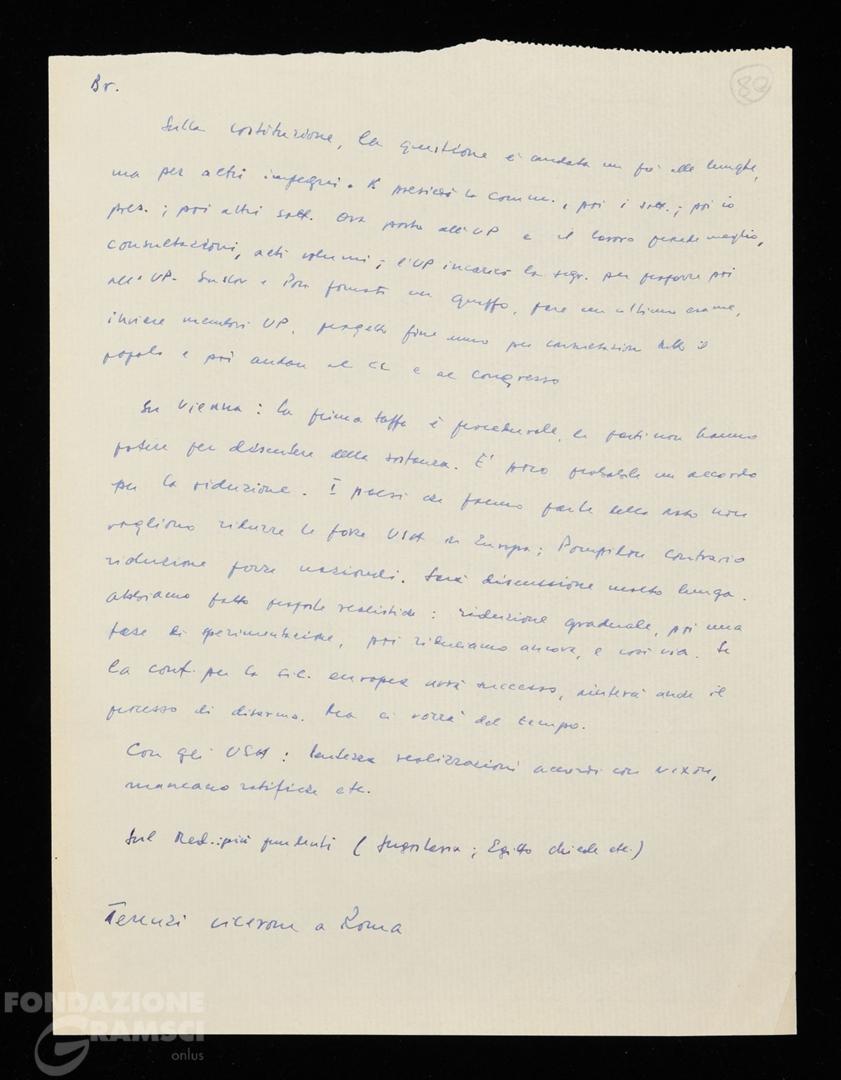 82
Br.
Sulla costituzione, la questione è andata un po' alle lunghe,
ma per altri impegni. K presiedé la comm., poi i sost.; poi io
pres.; poi altri sost. Ora posto all'UP e il lavoro procede meglio,
consultazioni, altri volumi; l'UP incaricò la segr. per proporre poi
all'UP. Suslov e Pon formati un gruppo, fare un ultimo esame,
inviare membri UP, progetto fine anno per consultazione tutto il
popolo e poi andare al CC e al congresso
Su Vienna: la prima tappa è procedurale, le parti non hanno
potere per discutere della sostanza. E' poco probabile un accordo
per la riduzione. I paesi che fanno parte della nato non
vogliono ridurre le forze USA in Europa; Pompidou contrario
riduzione forze nazionali. Sarà discussione molto lunga.
Abbiamo fatto proposte realistiche: riduzione graduale, poi una
fase di sperimentazione, poi riduciamo ancora, e così via. Se
la conf. per la sic. europea avrà successo, aiuterà anche il
processo di disarmo. Ma ci vorrà del tempo.
Con gli USA: lentezza realizzazioni accordi con Nixon,
mancano ratifiche etc.
Sul Med. più prudenti (Jugoslavia; Egitto chiede etc.)
Terenzi cicerone a Roma
FONDAZIONE
GRAMSCI
onlus